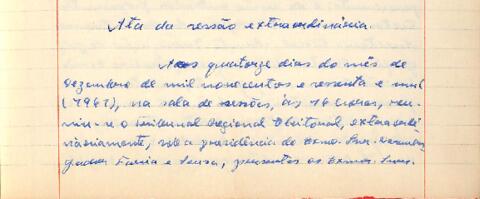 Ata da sessão extraordinária.
Aos quatorze dias do mês de
dezembro de mil novecentos e sessenta e um
(1961), na sala de sessões, às 16 horas, reu-
niu-se o Tribunal Regional Eleitoral, extraordi-
nàriamente, sob a presidência do Exmo. Snr. Desembar-
gador Faria e Sousa, presentes os Exmos. Snrs.